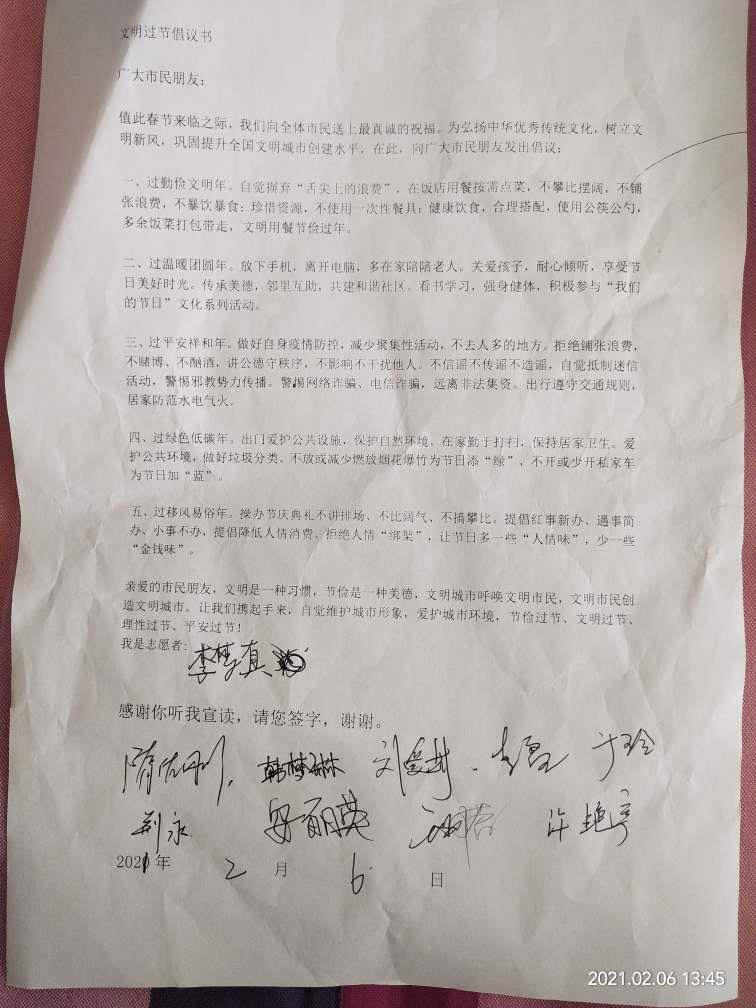 文明过节倡议书
广大市民朋友:
值此春节来临之际，我们向全体市民送上最真诚的祝福。为弘扬中华优秀传统文化，树立文
明新风，巩固提升全国文明城市创建水平，在此，向广大市民朋友发出倡议:
一、过勤俭文明年。自觉摒弃“舌尖上的浪费”，在饭店用餐按需点菜，不攀比摆阔，不铺
张浪费，不暴饮暴食；珍惜资源，不使用一次性餐具；健康饮食，合理搭配，使用公筷公勺，
多余饭菜打包带走，文明用餐节俭过年。
二、过温暖团圆年。放下手机，离开电脑，多在家陪陪老人。关爱孩子，耐心倾听，享受节
日美好时光。传承美德，邻里互助，共建和谐社区。看书学习，强身健体，积极参与“我们
的节日”文化系列活动。
三、过平安祥和年。做好自身疫情防控，减少聚集性活动，不去人多的地方。拒绝铺张浪费，
不赌博、不酗酒，讲公德守秩序，不影响不干扰他人。不信谣不传谣不造谣，自觉抵制迷信
活动，警惕邪教势力传播。警惕网络诈骗、电信诈骗，远离非法集资。出行遵守交通规则，
居家防范水电气火。
四、过绿色低碳年。出门爱护公共设施，保护自然环境。在家勤于打扫，保持居家卫生。爱
护公共环境，做好垃圾分类。不放或减少燃放烟花爆竹为节日添“绿”，不开或少开私家车
为节日加“蓝”。
五、过移风易俗年。操办节庆典礼不讲排场、不比阔气、不搞攀比。提倡红事新办、遇事简
办、小事不办，提倡降低人情消费、拒绝人情“绑架”，让节日多一些“人情味”，少一些
“金钱味”。
亲爱的市民朋友，文明是一种习惯，节俭是一种美德，文明城市呼唤文明市民，文明市民创
造文明城市。让我们携起手来，自觉维护城市形象，爱护城市环境，节俭过节、文明过节、
理性过节、平安过节！
我是志愿者: 李梦真
感谢你听我宣读，请您签字，谢谢。
韩梦琳 于玲
荆永 安丽英 许艳亭
2021年 2 月 6 日
2021.02.06 13:45